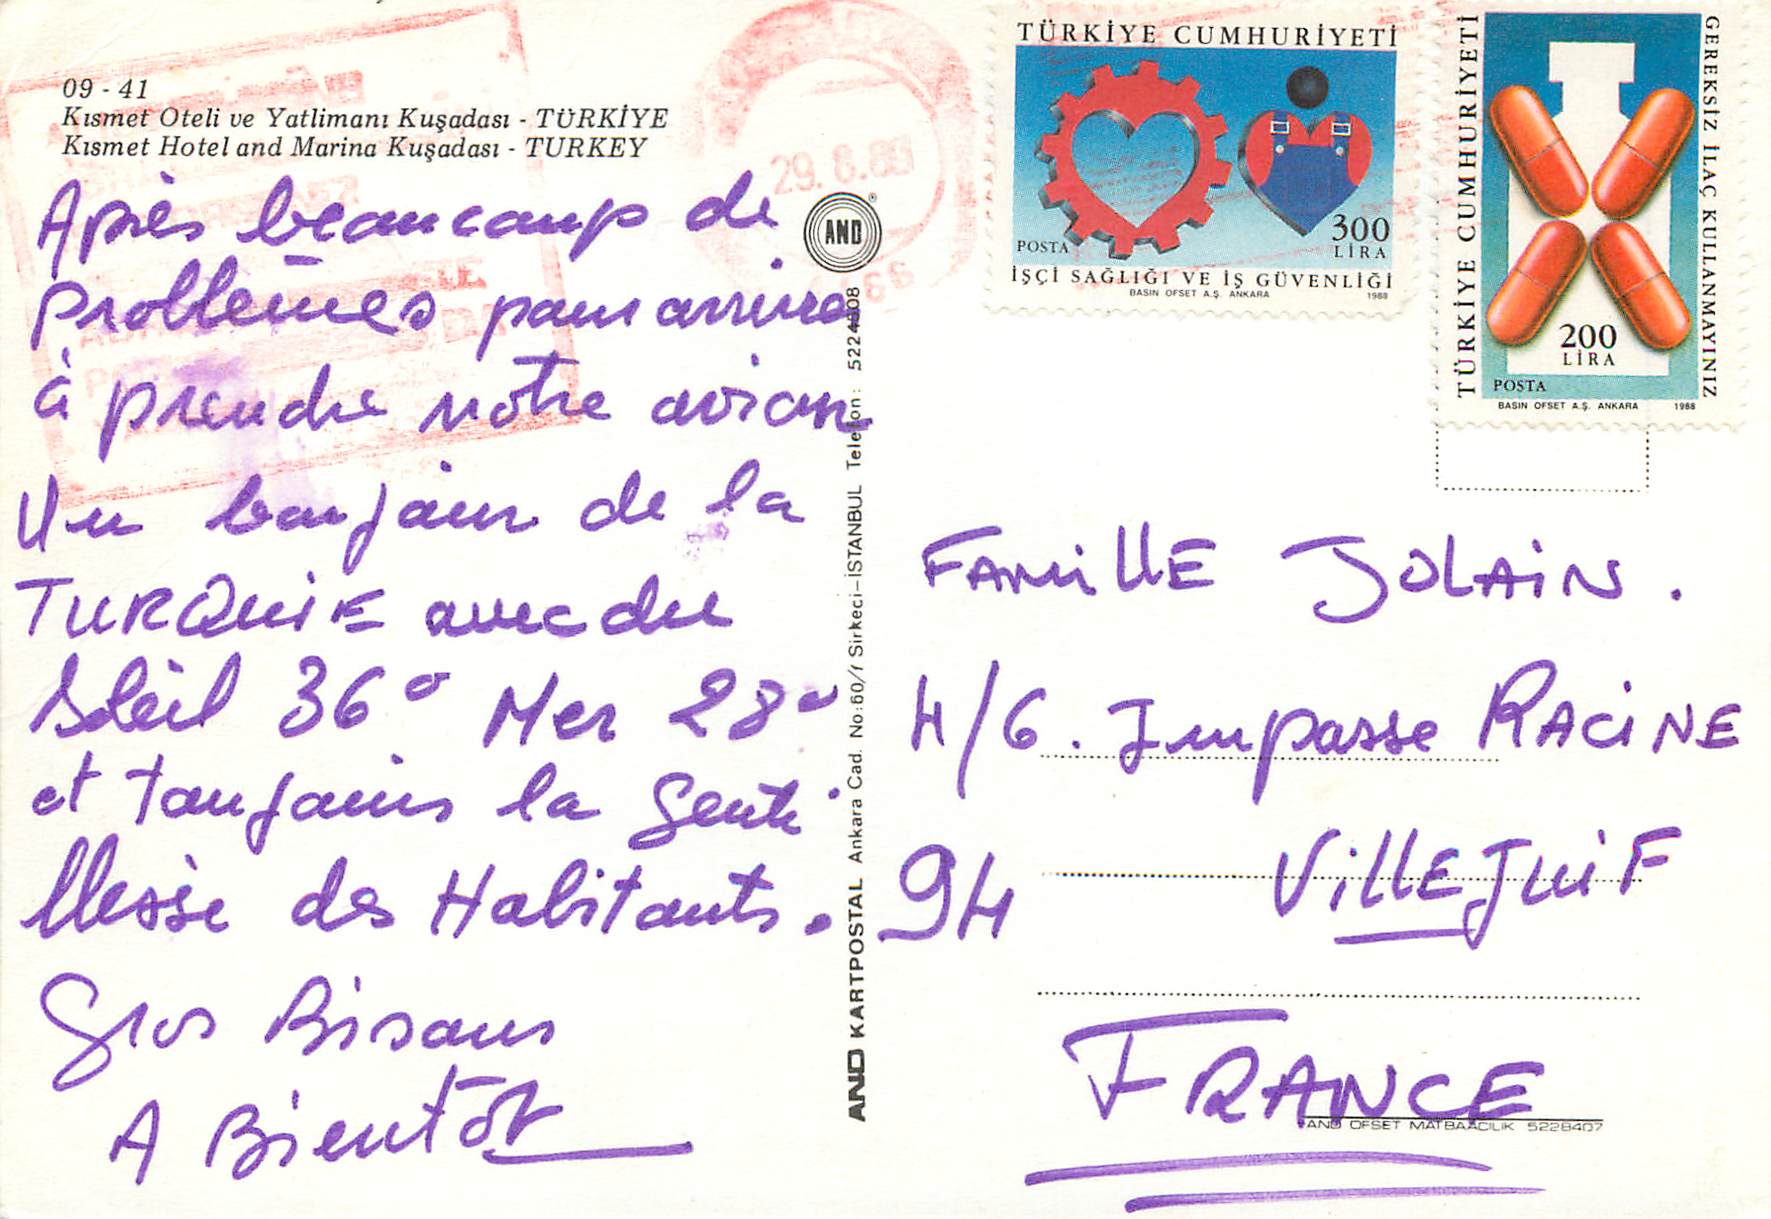 09 - 41
Kısmet Oteli ve Yatlimanı Kuşadası - TÜRKİYE
Kısmet Hotel and Marina Kuşadası - TURKEY
Après beaucoup de
problèmes pour arriver
à prendre notre avion
Un bonjour de la
TURQUIE avec du
Soleil 36° Mer 28°
et toujours la genti
llesse des Habitants.
Gros Bisous
A Bientôt
AND
AND KARTPOSTAL Ankara Cad. No:60/1 Sirkeci-İSTANBUL Telefon: 522 4808
29.8.89
TÜRKİYE CUMHURİYETİ
POSTA
300
LİRA
İŞÇİ SAĞLIĞI VE İŞ GÜVENLİĞİ
BASIN OFSET A.Ş. ANKARA 1988
TÜRKİYE CUMHURİYETİ
GEREKSİZ İLAÇ KULLANMAYINIZ
200
LİRA
POSTA
BASIN OFSET A.Ş. ANKARA 1988
FAMILLE JOLAIN.
4/6. Impasse RACINE
94 VILLEJUIF
FRANCE
AND OFSET MATBAACILIK 5228407